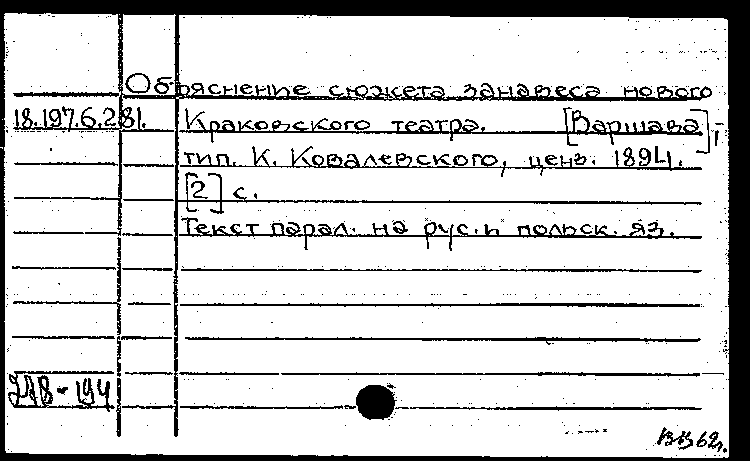 Объяснение сюжета занавеса нового
18.197.6.281. Краковского театра. [Варшава],
тип. К. Ковалевского, ценз. 1894.
[2] с.
Текст парал. на рус. и польск. яз.